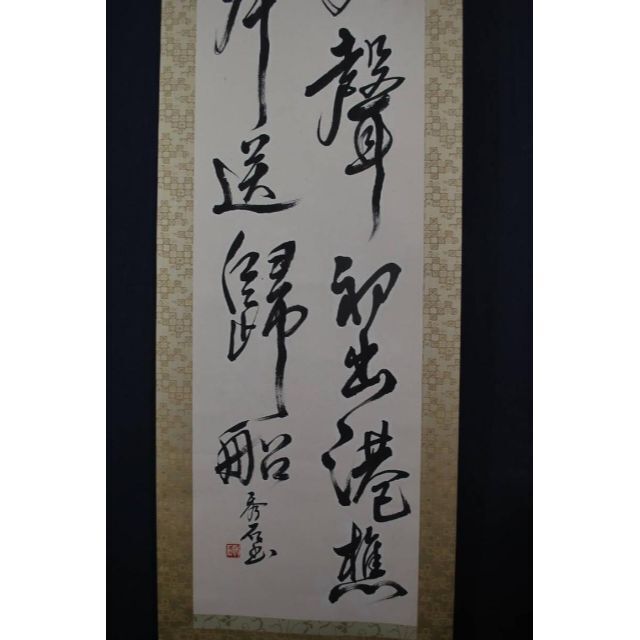 聲初出港樵
送歸船
秀石